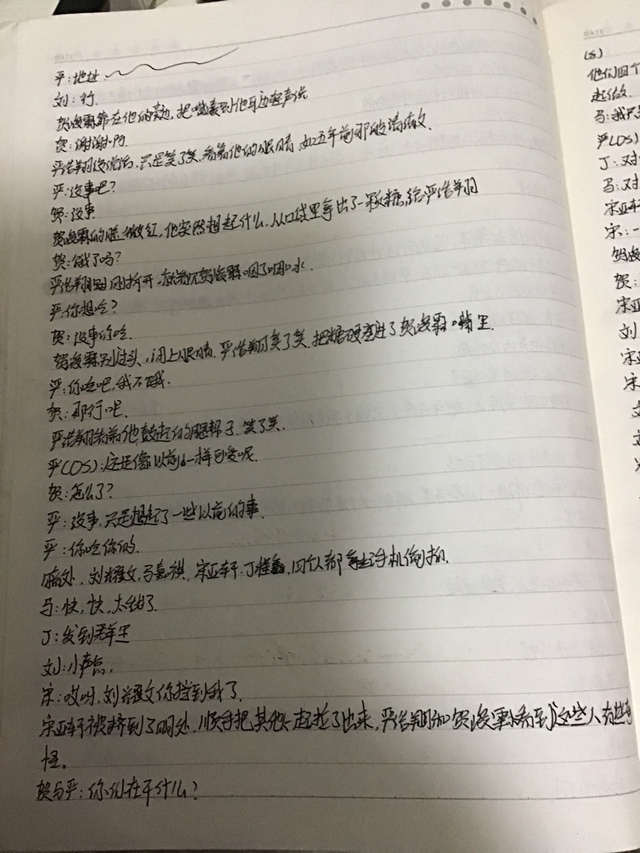 严:地址
刘:行.
贺峻霖靠在他的旁边,把嘴凑到他耳边轻声说
贺:谢谢.阿.
严浩翔没说话,只是笑了笑,看着他的眼睛,如五年前那般清澈.
严:没事吧?
贺:没事
贺峻霖的脸微红,他突然想起什么,从口袋里拿出了一颗糖,给严浩翔
贺:饿了吗?
严浩翔刚拆开,就看见贺峻霖咽了咽口水.
严:你想吃?
贺:没事你吃.
贺峻霖别过头,闭上眼睛.严浩翔笑了笑,把糖硬塞进了贺峻霖嘴里.
严:你吃吧,我不饿.
贺:那行吧.
严浩翔看着他鼓起的腮帮子,笑了笑.
严(OS):还是像以前一样可爱呢.
贺:怎么了?
严:没事.只是想起了一些以前的事.
严:你吃你的.
暗处,刘耀文,马嘉祺,宋亚轩,丁程鑫,四个人都拿出手机偷拍.
马:快,快,太甜了.
丁:发到群里
刘:小声点.
宋:哎呀,刘耀文你挡到我了.
宋亚轩被挤到了明处,顺手把其他一起拉了出来,严浩翔和贺峻霖看到这些人有些奇
怪.
贺与严:你们在干什么?
(8)
他们四个
起做.
马:我只
严(OS)
丁:对
马:对
宋亚轩
宋:一
贺峻
贺:
宋亚
刘:
宋亚
宋